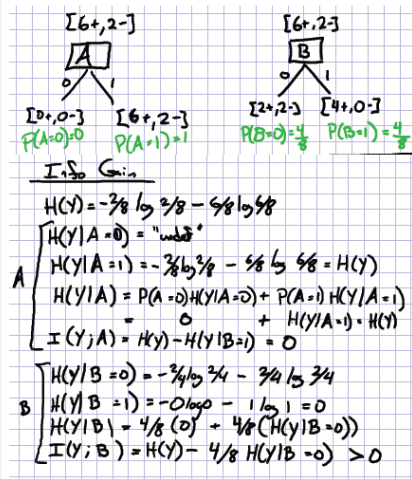 [6+,2-] [6+,2-]
A B
0 1 0 1
[0+,0-] [6+,2-] [2+,2-] [4+,0-]
P(A=0)=0 P(A=1)=1 P(B=0)=4/8 P(B=1)=4/8
Info Gain
H(Y)=-2/8 log 2/8 - 6/8 log 6/8
H(Y|A=0) = "undef"
H(Y|A=1) = -2/8 log 2/8 - 6/8 log 6/8 = H(Y)
A
H(Y|A) = P(A=0)H(Y|A=0) + P(A=1) H(Y|A=1)
= 0 + H(Y|A=1) = H(Y)
I(Y;A) = H(Y) - H(Y|B=1) = 0
H(Y|B=0) = -2/4 log 2/4 - 2/4 log 2/4
B
H(Y|B=1) = -0 log 0 - 1 log 1 = 0
H(Y|B) = 4/8 (0) + 4/8 (H(Y|B=0))
I(Y;B) = H(Y) - 4/8 H(Y|B=0) > 0